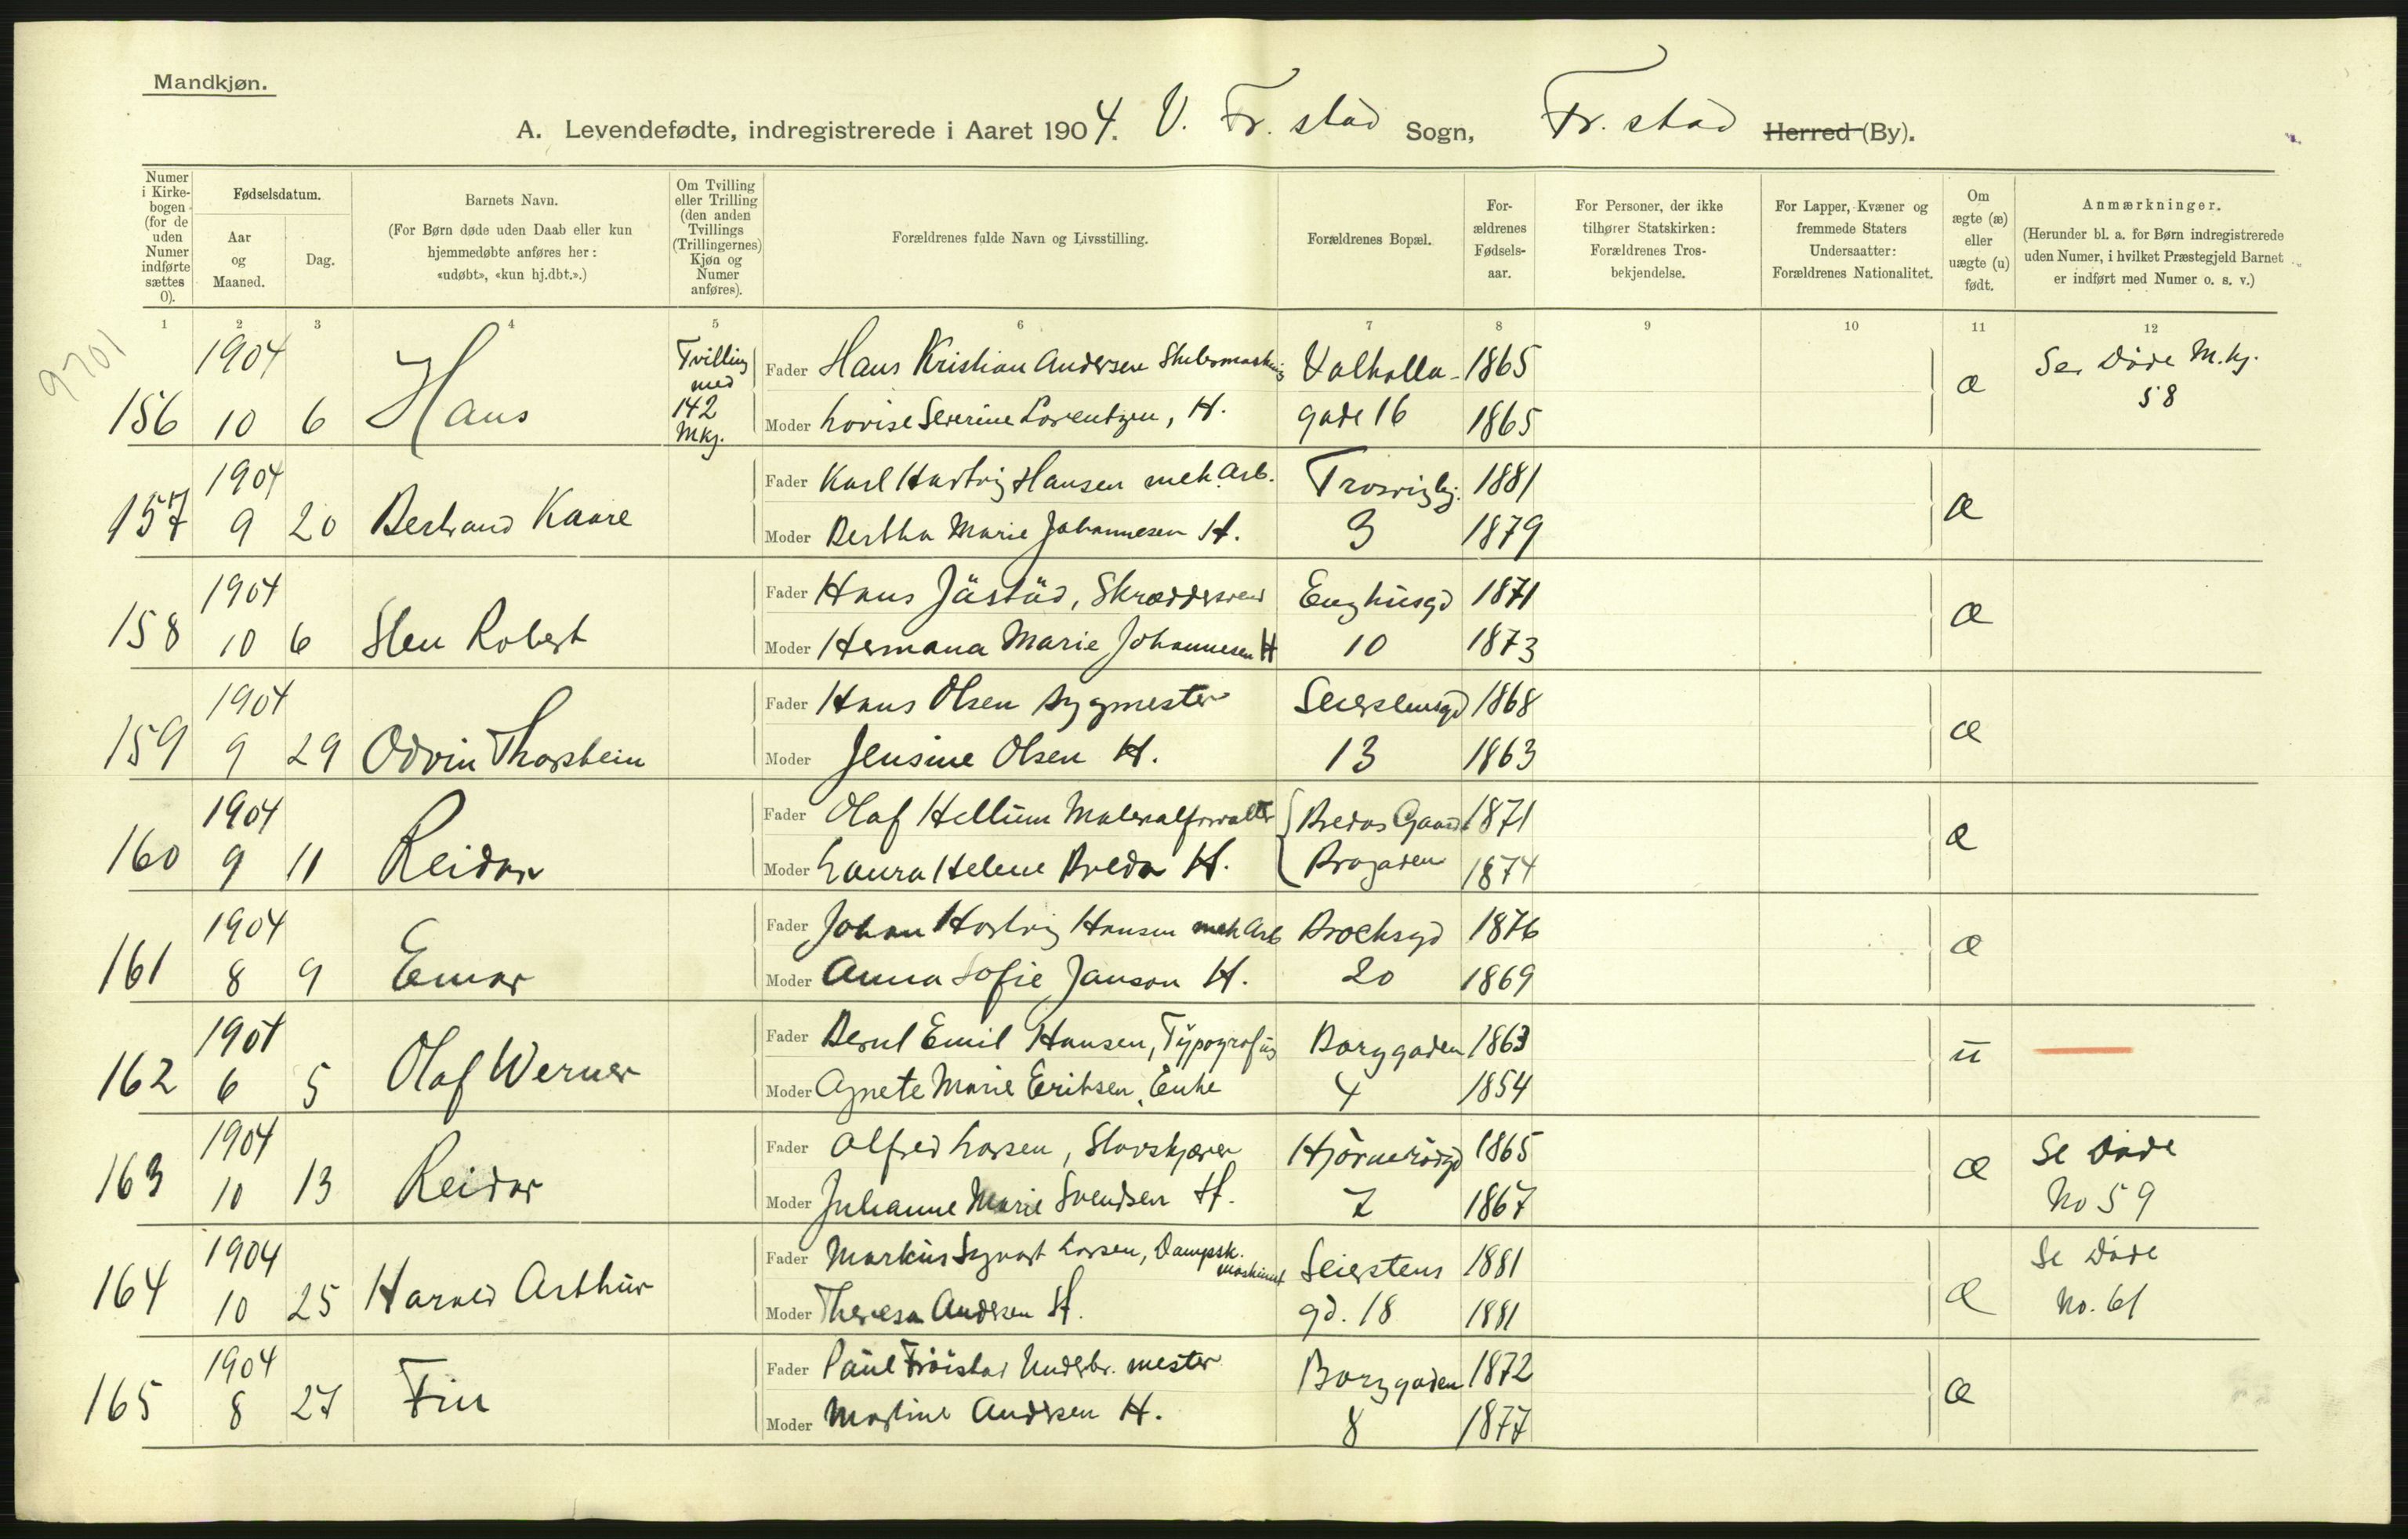 Mandkjøn.
A. Levendefødte, indregistrerede i Aaret 1904. V. Fr. stad Sogn, Fr. stad Herred (By).
Numer i Kirke- bogen (for de uden Numer indførte sættes 0).
Fødselsdatum.
Aar og Maaned.
Dag.
Barnets Navn.
(For Børn døde uden Daab eller kun hjemmedøbte anføres her: «udøbt», «kun hj.dbt.».)
Om Tvilling eller Trilling (den anden Tvillings (Trillingernes) Kjøn og Numer anføres).
Forældrenes fulde Navn og Livsstilling.
Forældrenes Bopæl.
For- ældrenes Fødsels- aar.
For Personer, der ikke tilhører Statskirken: Forældrenes Tros- bekjendelse.
For Lapper, Kvæner og fremmede Staters Undersaatter: Forældrenes Nationalitet.
Om ægte (æ) eller uægte (u) født.
Anmærkninger.
(Herunder bl. a. for Børn indregistrerede uden Numer, i hvilket Præstegjeld Barnet er indført med Numer o. s. v.)
1 2 3 4 5 6 7 8 9 10 11 12
9701
1904 Tvilling med Fader Hans Kristian Andersen Valhalla- 1865 Se Døde M.kj.
156 10 6 Hans 142 Mkj. Moder Lovise Severine Lorentzen, H. gade 16 1865 æ 58
1904 Fader Karl Hartvig Hansen mek. Arb. Trosvigbj. 1881
157 9 20 Bertrand Kaare Moder Bertha Marie Johannesen H. 3 1879 æ
1904 Fader Hans Jåstad, Skræddersvend Enghusgd 1871
158 10 6 Sten Robert Moder Hermana Marie Johannesen H 10 1873 æ
1904 Fader Hans Olsen Bygmester Seierstensgd 1868
159 9 29 Odvin Thorstein Moder Jensine Olsen H. 13 1863 æ
1904 Fader Olaf Hellum Materialforvalter Bredas Gaard 1871
160 9 11 Reidar Moder Laura Helene Breda H. Brogaden 1874 æ
1904 Fader Johan Hartvig Hansen mek Arb Brocksgd 1876
161 8 9 Einar Moder Anna Sofie Janson H. 20 1869 æ
1904 Fader Bernt Emil Hansen, Typograf Borggaden 1863
162 6 5 Olaf Werner Moder Agnete Marie Eriksen, Enke 4 1854 u
1904 Fader Alfred Larsen, Stavskjærer Hjørnerødgd 1865 Se Døde
163 10 13 Reidar Moder Julianne Marie Svendsen H. 7 1867 æ No 59
1904 Fader Markus Sigvart Larsen, Dampsk. maskinist Seierstens 1881 Se Døde
164 10 25 Harald Arthur Moder Theresa Andersen H. gd. 18 1881 æ No. 61
1904 Fader Paul Frøistad Underbr. mester Borggaden 1872
165 8 27 Fin Moder Martine Andersen H. 8 1877 æ